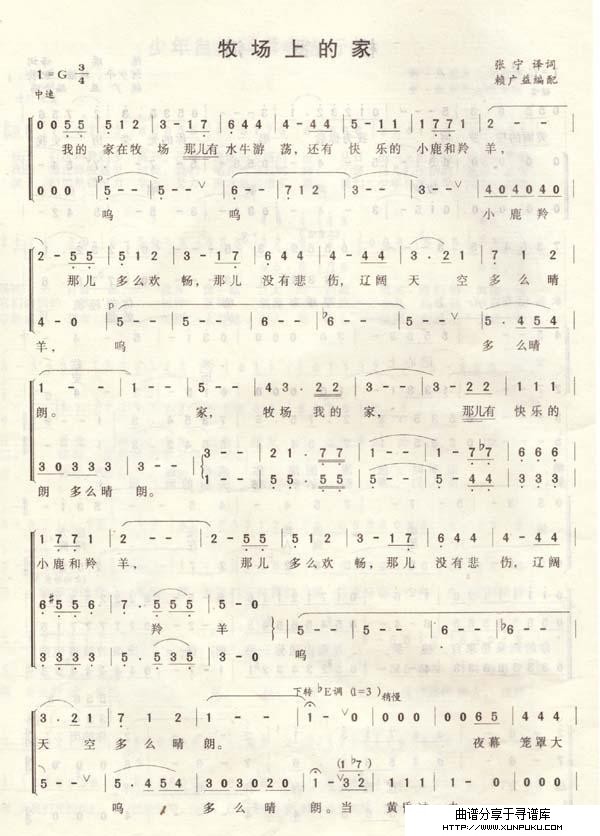 牧场上的家
1=G 3/4
张宁译词
中速
赖广益编配
0055 | 512 | 3-17 | 644 | 4-44 | 5-11 | 1771 | 2-- |
我的 家在牧 场 那儿有 水牛游 荡,还有 快乐的 小鹿和羚 羊,
p
000 | 5-- | 5-∨ | 6-- | 712 | 3-- | 404040 |
呜 呜 小鹿羚
2-55 | 512 | 3-17 | 644 | 4-44 | 3·21 | 712 |
那儿 多么欢 畅,那儿 没有悲 伤,辽阔 天 空多么晴
p
4-0 | 5-- | 5-- | 6-- | ♭6-- | 5--∨ | 5·454 |
羊, 呜 多么晴
1-- | 1-- | 5-- | 43·22 | 3-- | 3-22 | 111 |
朗。 家, 牧场我的 家, 那儿有 快乐的
30333 | 3-0 | 3-- | 21·77 | 1-- | 1-7♭7 | 666 |
朗 多么晴 朗。
1771 | 2-- | 2-55 | 512 | 3-17 | 644 | 4-44 |
小鹿和羚 羊, 那儿 多么欢 畅,那儿 没有悲 伤,辽阔
6♯556 | 7·555 | 5-0 | 5-- | 5-- | 6-- | ♭6-- |
羚 羊 呜
3333 | 5·535
下转♭E调(1=3)
稍慢
3·21 | 712 | 1-- | 1-∨0 | 000 | 0065 | 444 |
天 空多么晴 朗。 夜幕 笼罩大
(1♭7)
5--∨ | 5·454 | 303020 | 1-32 | 111
呜 多么晴 朗。当 黄
曲谱分享于寻谱库
www.XUNPUKU.com